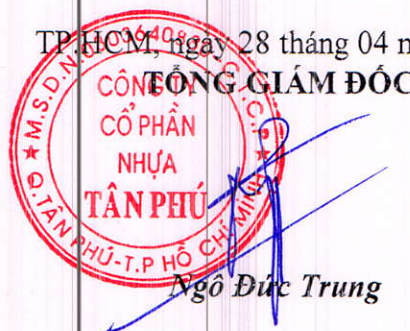 TP.HCM, ngày 28 tháng 04 n
TỔNG GIÁM ĐỐC
CÔNG TY
CỔ PHẦN
NHỰA
TÂN PHÚ
Q.TÂN PHÚ-T.P HỒ CHÍ MINH
Ngô Đức Trung